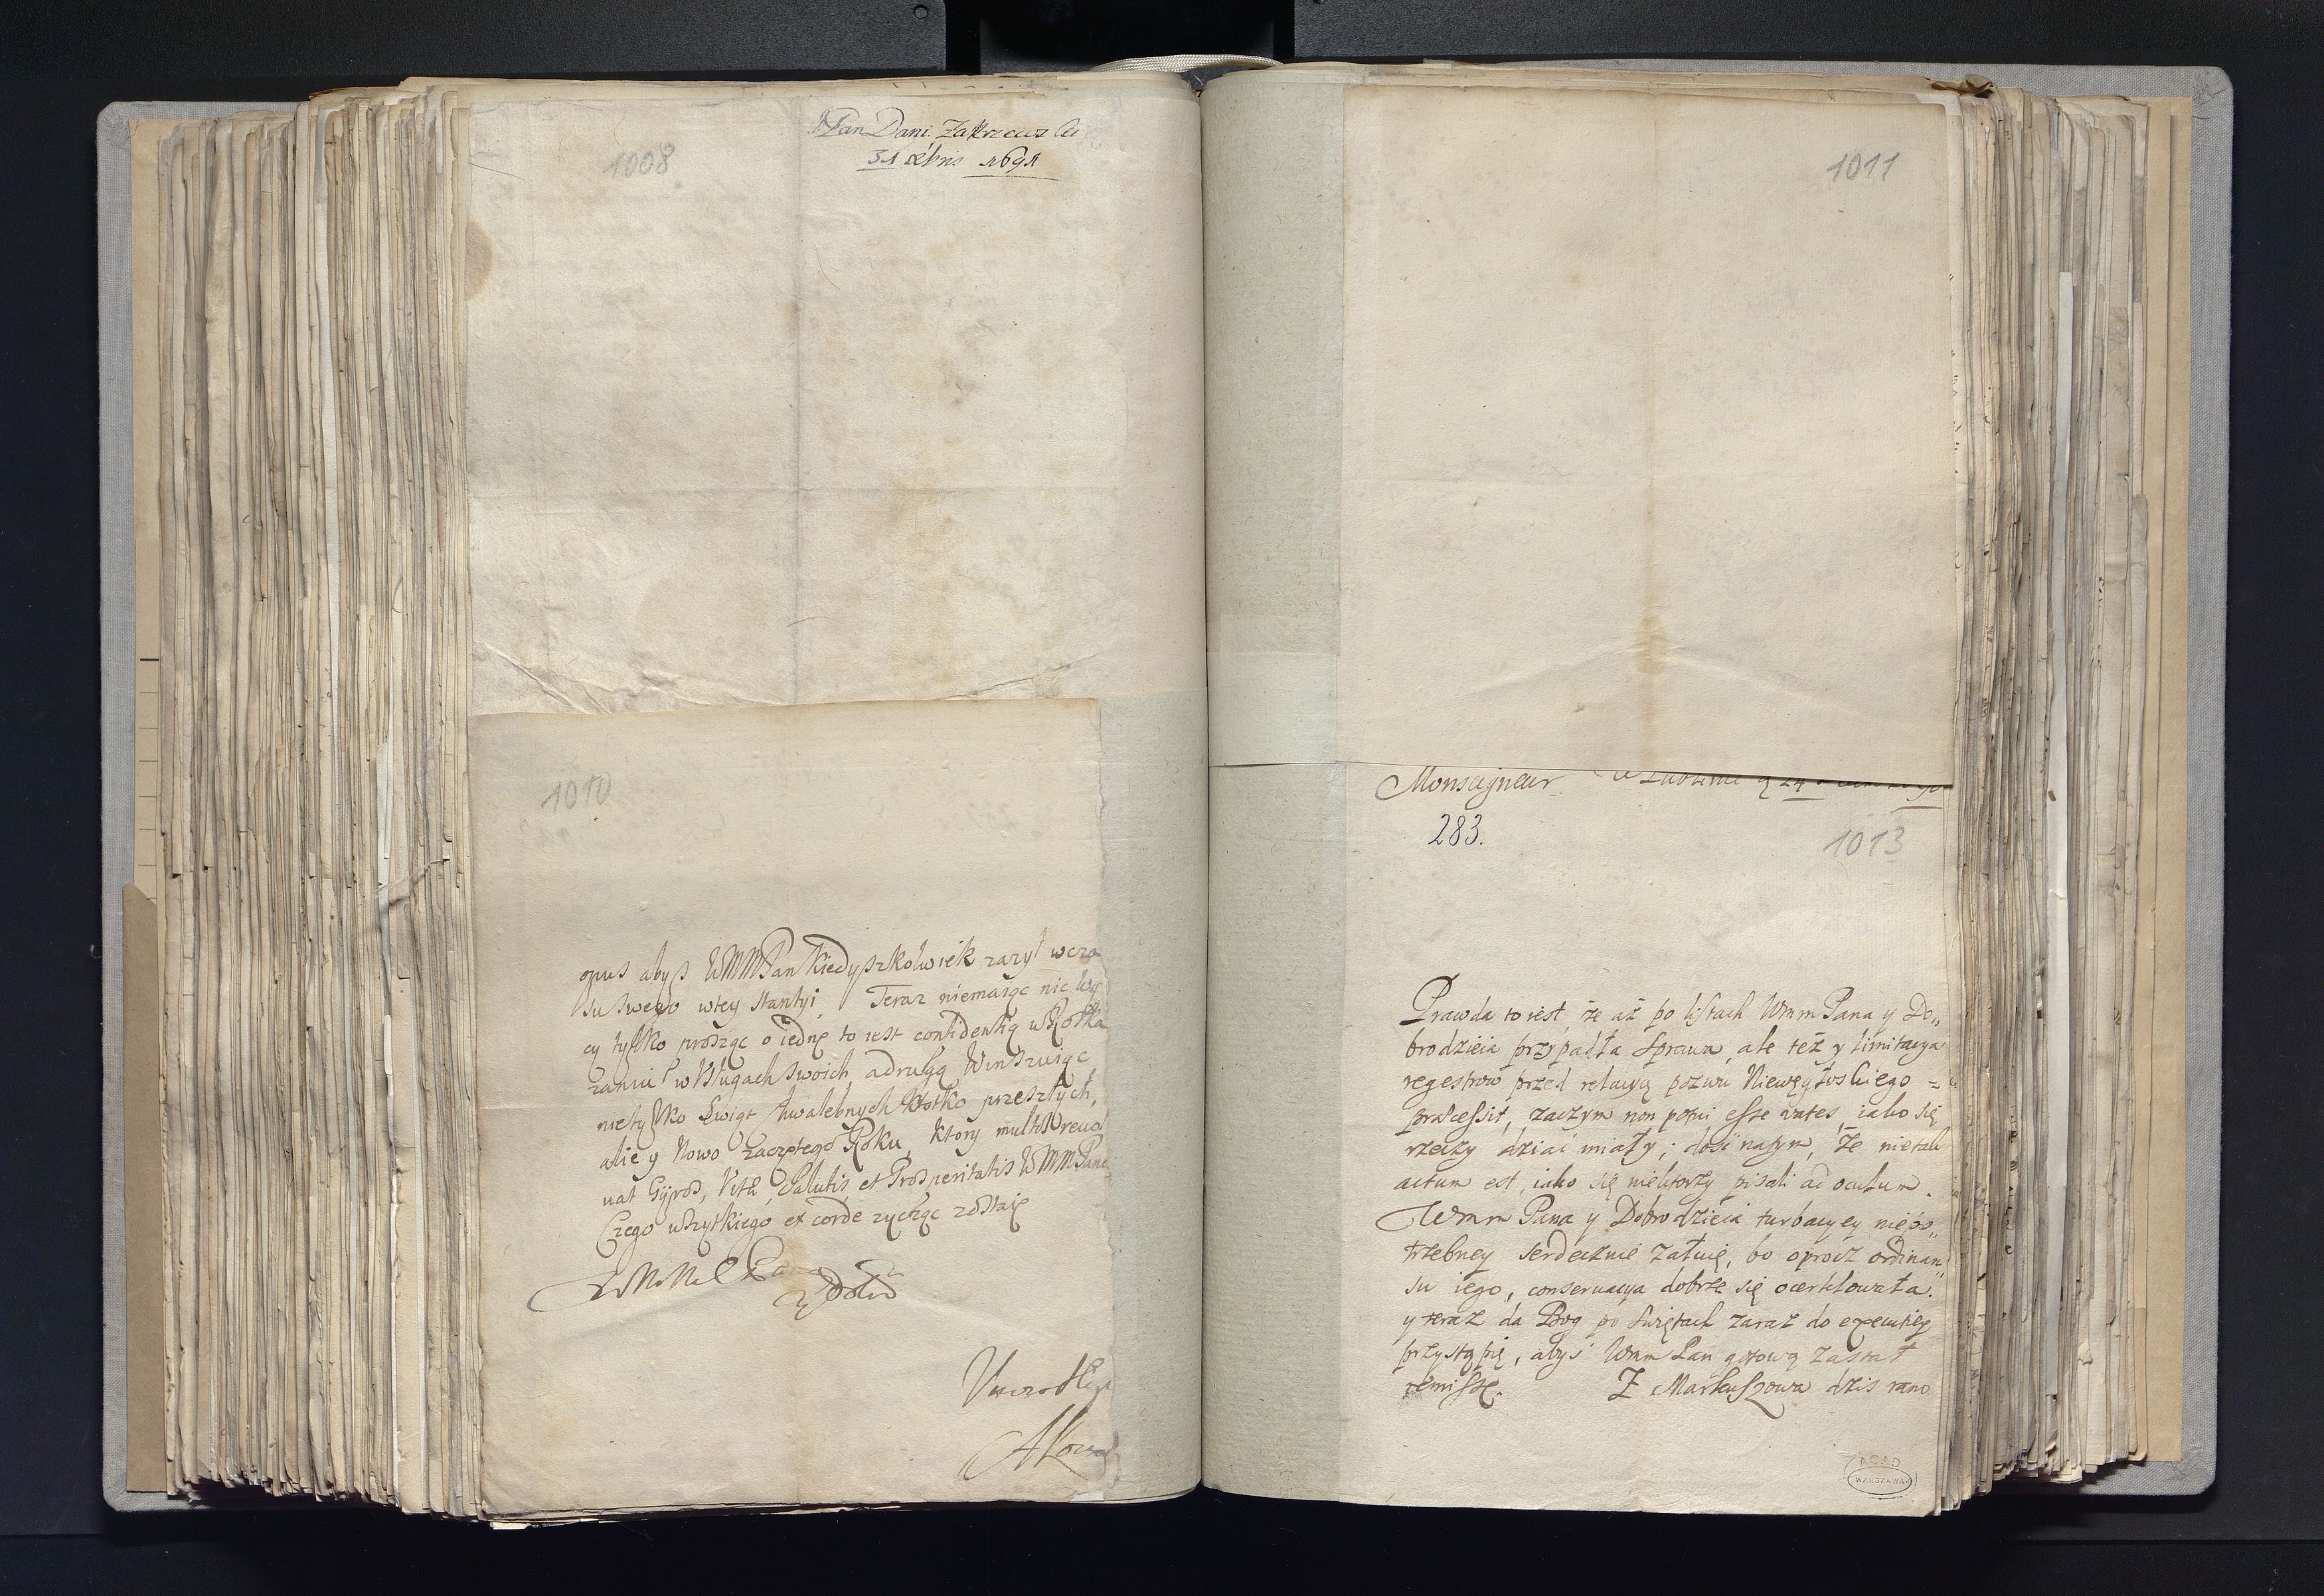 1008
JPan Dani. Zakrzewski
31 xbris 1691
1010
opus abys WMMPan Kiedyszkolwiek zazył wcza
su swego wtey stantyi, Teraz niemaiąc nic
cy tylko prosząc o iednę to iest confidentią
w Vsługach swoich a drugą Winszuiąc
nietylko Swiąt chwalebnych przeszłych,
alie y Nowo zaczętego Roku, ktory
Vitæ, Salutis, et Prosperitatis WMMPana
Czego wszytkiego ex corde zycząc zostaię
1011
Monseigneur
283.
1013
Prawda to iest, że aż po listach Wmm Pana y Do„
brodzieia przypadła sprawa, ale też y limitacya
regestrow przed relacyą pozwu Niewęgłoskiego =
præcessit, zaczym non potui esse vates, iako się
rzeczy dziać miały; dosć natym, że nietak
actum est, iako się niektorzy pisali ad oculum.
Wmm Pana y Dobrodzieia turbacyey niepo„
trzebney serdecznie żałuię, bo oprocz ordinan„
su iego, conserwacya dobrze się ocerklowała.
y teraz da Bog po świętach zaraz do execucyey
przystąpię, abyś Wmm Pan gotową zastał
remissę. Z Markuszowa dzis rano
AGAD
WARSZAWA